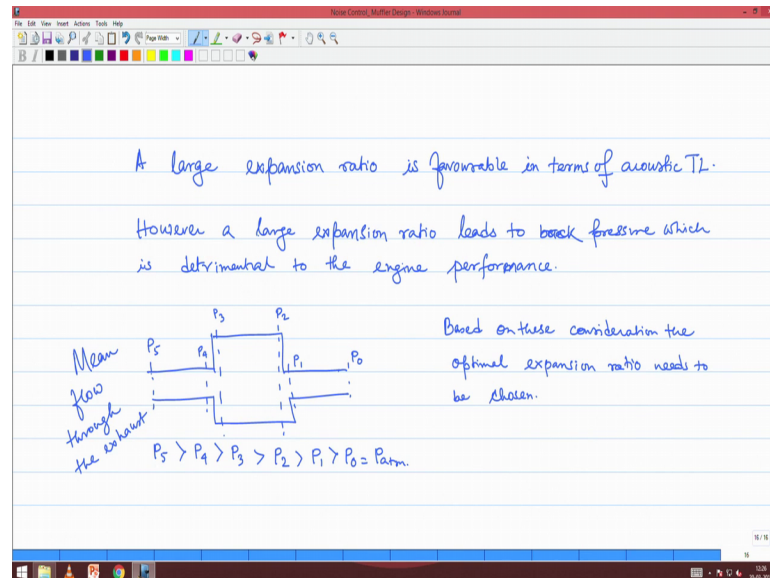 Noise Control, Muffler Design - Windows Journal
File Edit View Insert Actions Tools Help
Page Width
B I
A large expansion ratio is favourable in terms of acoustic TL.
However a large expansion ratio leads to back pressure which
is detrimental to the engine performance.
P3 P2
P5 P4 P1 P0
Mean
flow
through
the exhaust
Based on these consideration the
optimal expansion ratio needs to
be chosen.
P5 > P4 > P3 > P2 > P1 > P0 = Patm.
16 / 16
16
12:26